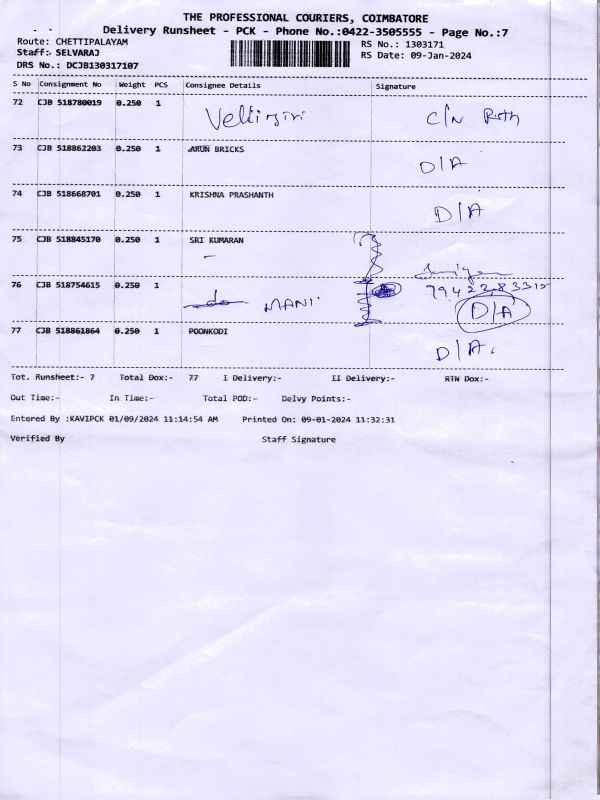 THE PROFESSIONAL COURIERS, COIMBATORE
Delivery Runsheet - PCK - Phone No.:0422-3505555 - Page No.:7
Route: CHETTIPALAYAM RS No.: 1303171
Staff: SELVARAJ RS Date: 09-Jan-2024
DRS No.: DCJB130317107
S No Consignment No Weight PCS Consignee Details Signature
72 CJB 518780019 0.250 1 C/N
73 CJB 518862203 0.250 1 ARUN BRICKS D/A
74 CJB 518668701 0.250 1 KRISHNA PRASHANTH D/A
75 CJB 518845170 0.250 1 SRI KUMARAN
76 CJB 518754615 0.250 1 MANI D/A
77 CJB 518861864 0.250 1 POONKODI D/A.
Tot. Runsheet:- 7 Total Dox:- 77 I Delivery:- II Delivery:- RTN Dox:-
Out Time:- In Time:- Total POD:- Delvy Points:-
Entered By :KAVIPCK 01/09/2024 11:14:54 AM Printed On: 09-01-2024 11:32:31
Verified By Staff Signature